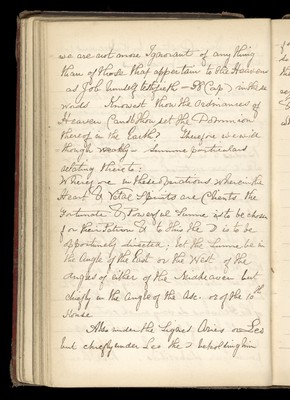 we are not more Ignorant of any thing
than of those that appertain to the Heavens
as Job himself telleth - 38 Cap) in these
words Knowest thou the ordinances of
Heaven Canst thou set the Dominion
thereof in the Earth? Therefore we will
though weakly - Summe particulars
relating thereto:
Wherefore in these operations wherein the
Heart & Vital Spirits are Chiefs the
Fortunate & Powerful Sunne is to be chosen
for their Patron & to this the ☽ is to be
opportunely directed: let the Sunne be in
the Angle of the East or the West of the
Angles of either of the Midheaven but
chiefly in the Angle of the Asc. or of the 10th
House
Also under the Signes Aries or Leo
but chiefly under Leo the ☽ beholding him